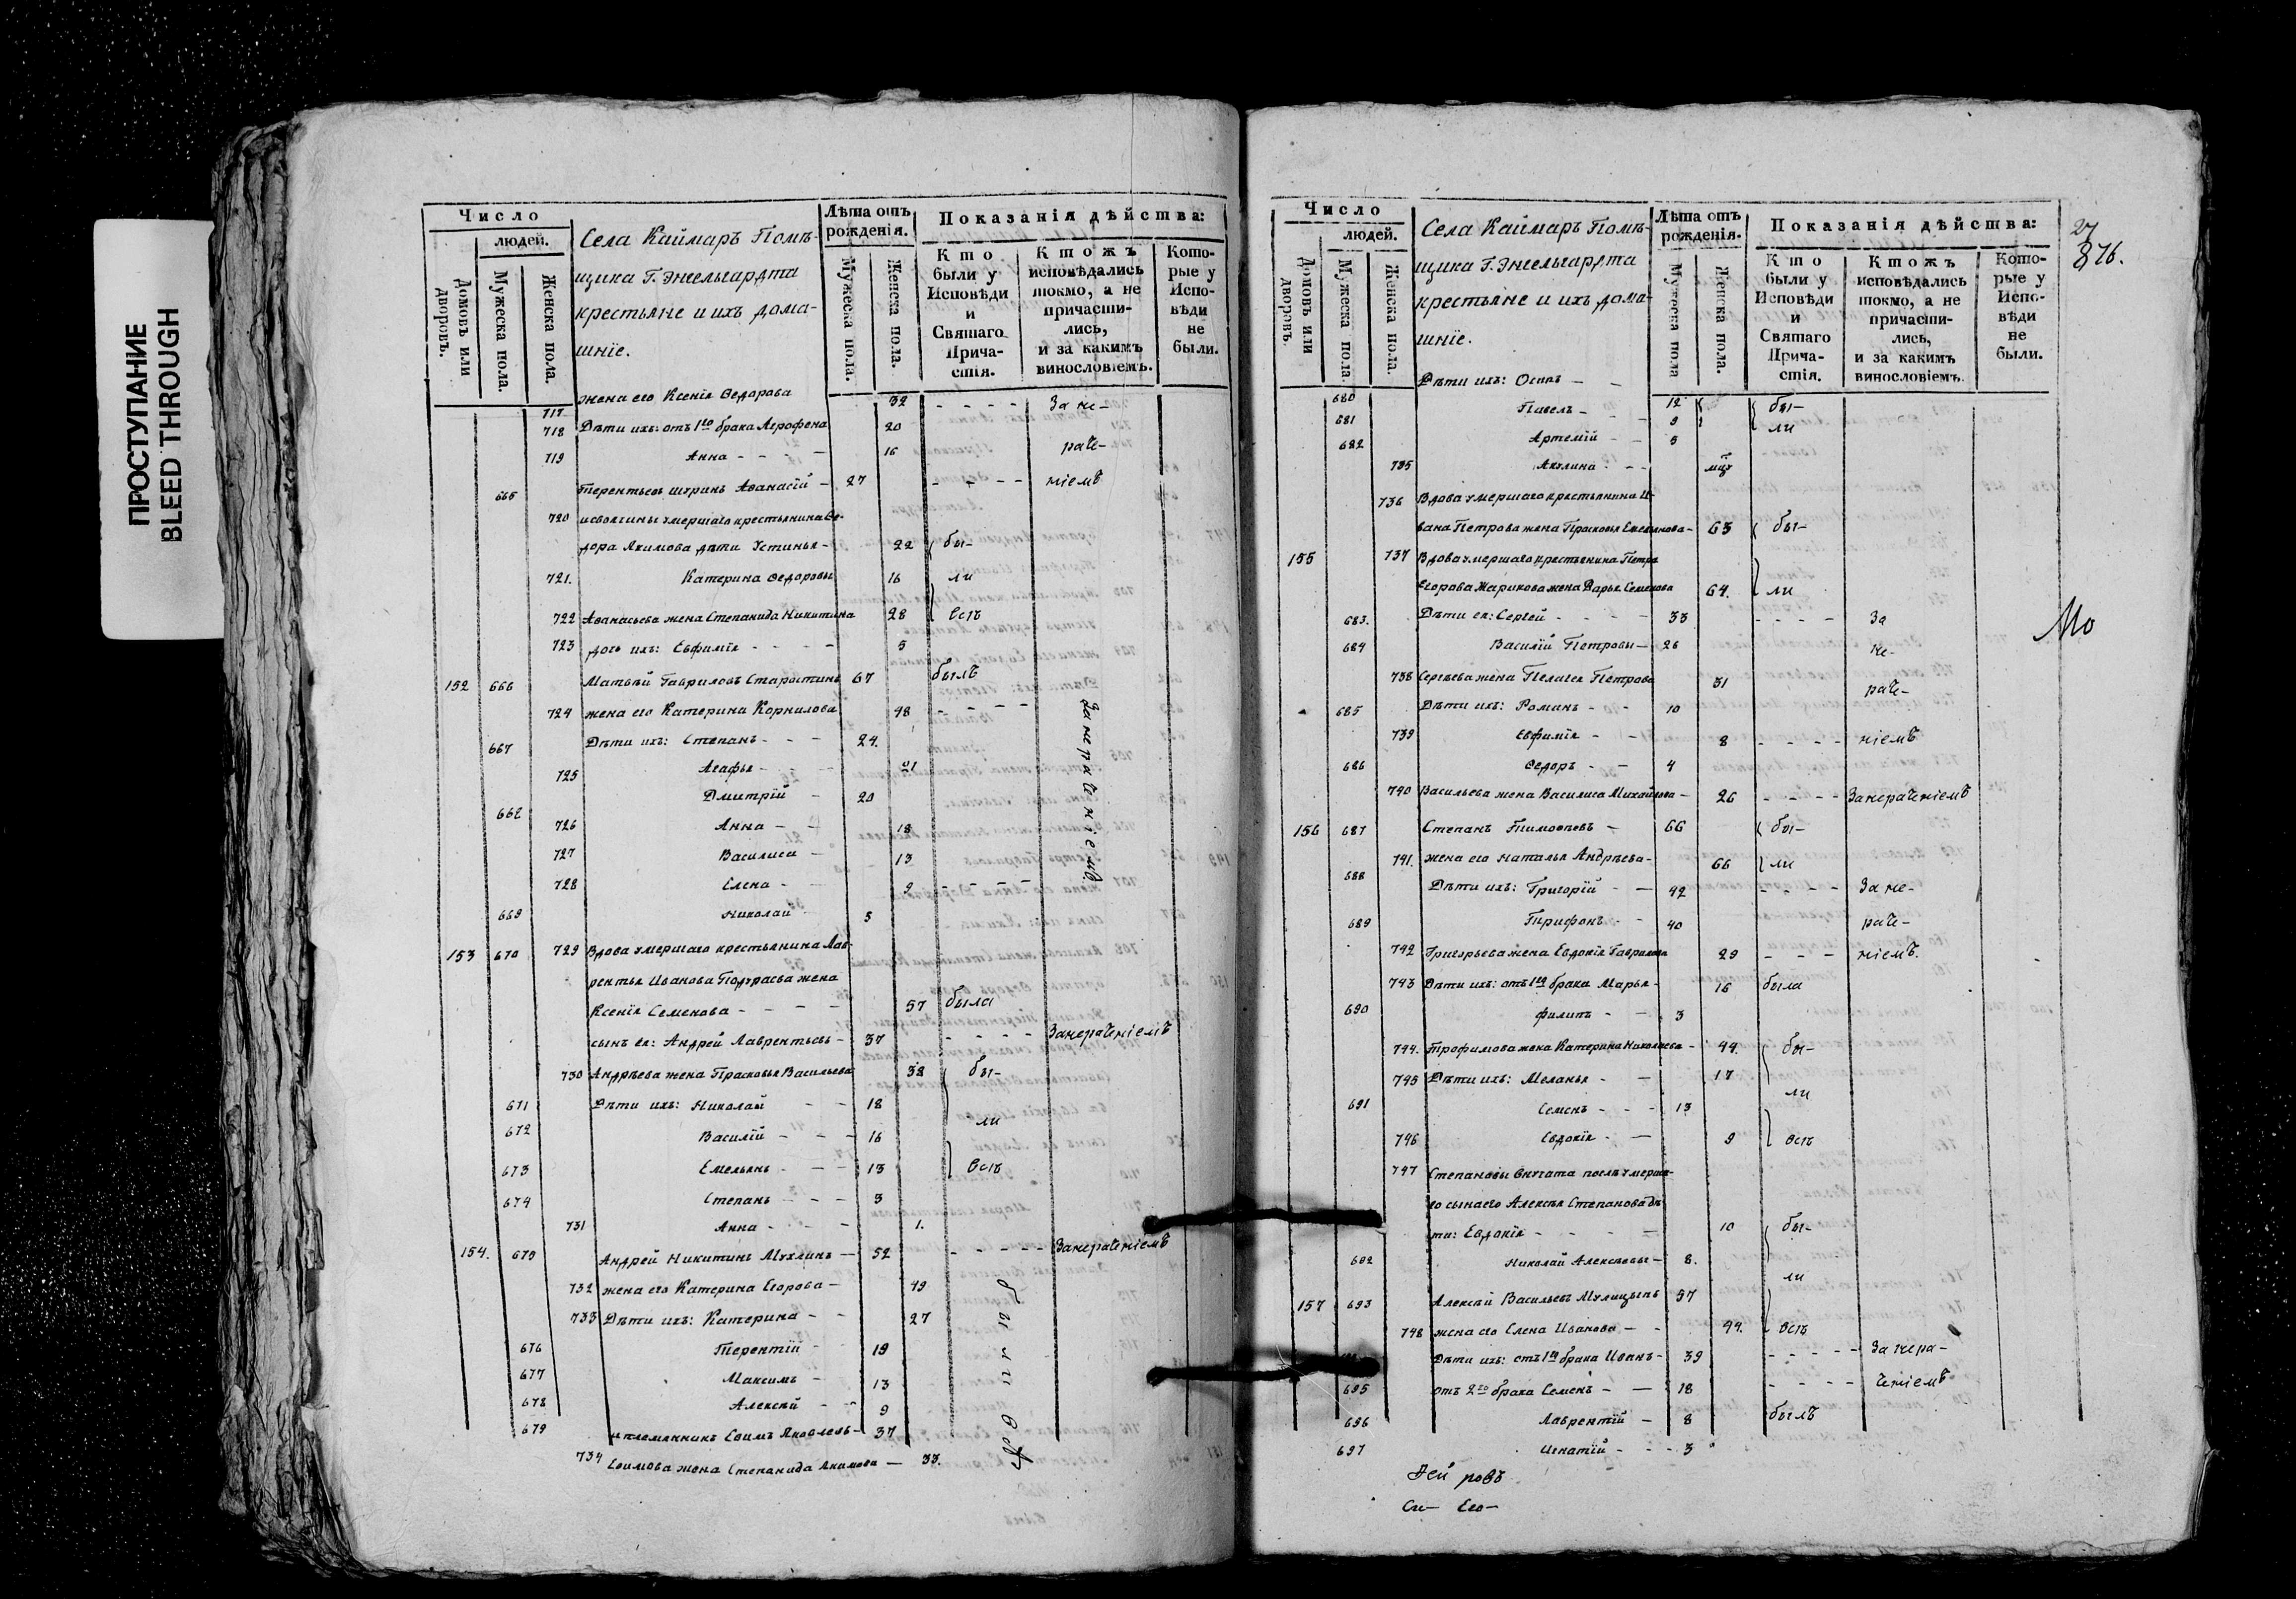 ПРОСТУПАНИЕ
BLEED THROUGH
Число
людей.
Домовъ или дворовъ.
Мужеска пола.
Женска пола.
Села Каймаръ Помѣ-
щика Г. Энгельгардта
крестьяне и ихъ дома-
шніе.
Лѣта отъ рожденія.
Мужеска пола.
Женска пола.
Показанія дѣйства:
Кто были у Исповѣди и Святаго Прича-стія.
Ктожъ исповѣдались токмо, а не причасти-лись, и за какимъ винословіемъ.
Кото-рые у Испо-вѣди не были.
717 жена его Ксенія Ѳедорова 32 - - - - За не-
718 Дѣти ихъ: отъ 1го брака Агрофена 20
719 Анна - - - - 16 раче-
665 Терентьевъ шуринъ Аѳанасій - 27 - - - - ніемъ
720 умершаго крестьянина Ѳе-
дора Якимова дѣти Устинья - 22 бы-
721. Катерина Ѳедоровы 16 ли
722 Аѳанасьева жена Степанида Никитина 28 всѣ
723 дочь ихъ: Евфимія - - - - 5
152 666 Матвѣй Гавриловъ Старостинъ 67 былъ
724 жена его Катерина Корнилова 48 - - - -
За нераченіемъ.
667 Дѣти ихъ: Степанъ - - - 24.
725 Агафья - - - 21
668 Дмитрій - 20
726 Анна - - 18
727 Василиса - 13
728 Елена - - 9 - - - -
669 Николай 5
153 670 729 Вдова умершаго крестьянина Лав-
рентья Иванова Подураева жена
Ксенія Семенова - - - - 57 была
сынъ ея: Андрей Лаврентьевъ - 37 - - - - За нераченіемъ
730 Андрѣева жена Прасковья Васильева 38 бы-
671 Дѣти ихъ: Николай - - 18 ли
672 Василій - - - 16
673 Емельянъ - - - 13 всѣ
674 Степанъ - - 3
731 Анна - - - 1.
154. 675 Андрей Никитинъ Мухлинъ - 52 - - - - - За нераченіемъ
732 жена его Катерина Егорова - 49
733 Дѣти ихъ: Катерина - - 27
676 Терентій - 19
677 Максимъ - 13
678 Алексѣй - - 9
679 племянникъ Ефимъ Яковлевъ - 37
734 Ефимова жена Степанида Акимова - 33.
Число
людей.
Домовъ или дворовъ.
Мужеска пола.
Женска пола.
Села Каймаръ Помѣ-
щика Г. Энгельгардта
крестьяне и ихъ дома-
шніе.
Лѣта отъ рожденія.
Мужеска пола
Женска пола.
Показанія дѣйства:
Кто были у Исповѣди и Святаго Прича-стія.
Ктожъ исповѣдались токмо, а не причасти-лись, и за какимъ винословіемъ.
Кото-рые у Испо-вѣди не были.
876.
680 Дѣти ихъ: Осипъ - - 12 бы-
681 Павелъ - - 9 ли
682 Артемій - - 5
735 Акулина - - -
736 Вдова умершаго крестьянина И-
вана Петрова жена Прасковья Емельянова - 63 бы-
155 737 Вдова умершаго крестьянина Петра
Егорова Жарикова жена Дарья Семенова 64. ли
683. Дѣти ея: Сергей - - - - 33 - - - - За
684 Василій Петровы - 26 не-
738 Сергѣева жена Пелагея Петрова 31 раче-
685 Дѣти ихъ: Романъ - - 10
739 Евфимія - - 8 - - - - ніемъ
686 Ѳедоръ - - 4
740 Васильева жена Василиса Михайлова - 26 - - - - За нераченіемъ
156 687 Степанъ Тимоѳеевъ - 66 бы-
741. жена его Наталья Андрѣева - 66 ли
688 Дѣти ихъ: Григорій - - 42 - - - - За не-
689 Трифонъ - - 40 раче-
742 Григорьева жена Евдокія Гаврилова 29 - - - ніемъ.
743 Дѣти ихъ: отъ 1го брака Марья - 16 была
690 филипъ - - 3
744. Трофимова жена Катерина Николаева - 44. бы-
745 Дѣти ихъ: Меланья - - 17 ли
691 Семенъ - - - 13
746 Евдокія - - 9 всѣ
747 Степановы внучата послѣ умерша-
го сына его Алексѣя Степанова дѣ
ти: Евдокія - - - - 10 бы-
692 Николай Алексѣевы - 8. ли
157 693 Алексѣй Васильевъ Мулицынъ 57
748 жена его Елена Иванова - - 44. всѣ
Дѣти ихъ: отъ 1го брака Иванъ - 39 - - - - - За нера-
695 отъ 2го брака Семенъ - - 18 - - - - ченіемъ
696 Лаврентій - 8 былъ
697 Игнатій - - - 3
рей ровъ
Си- Его-